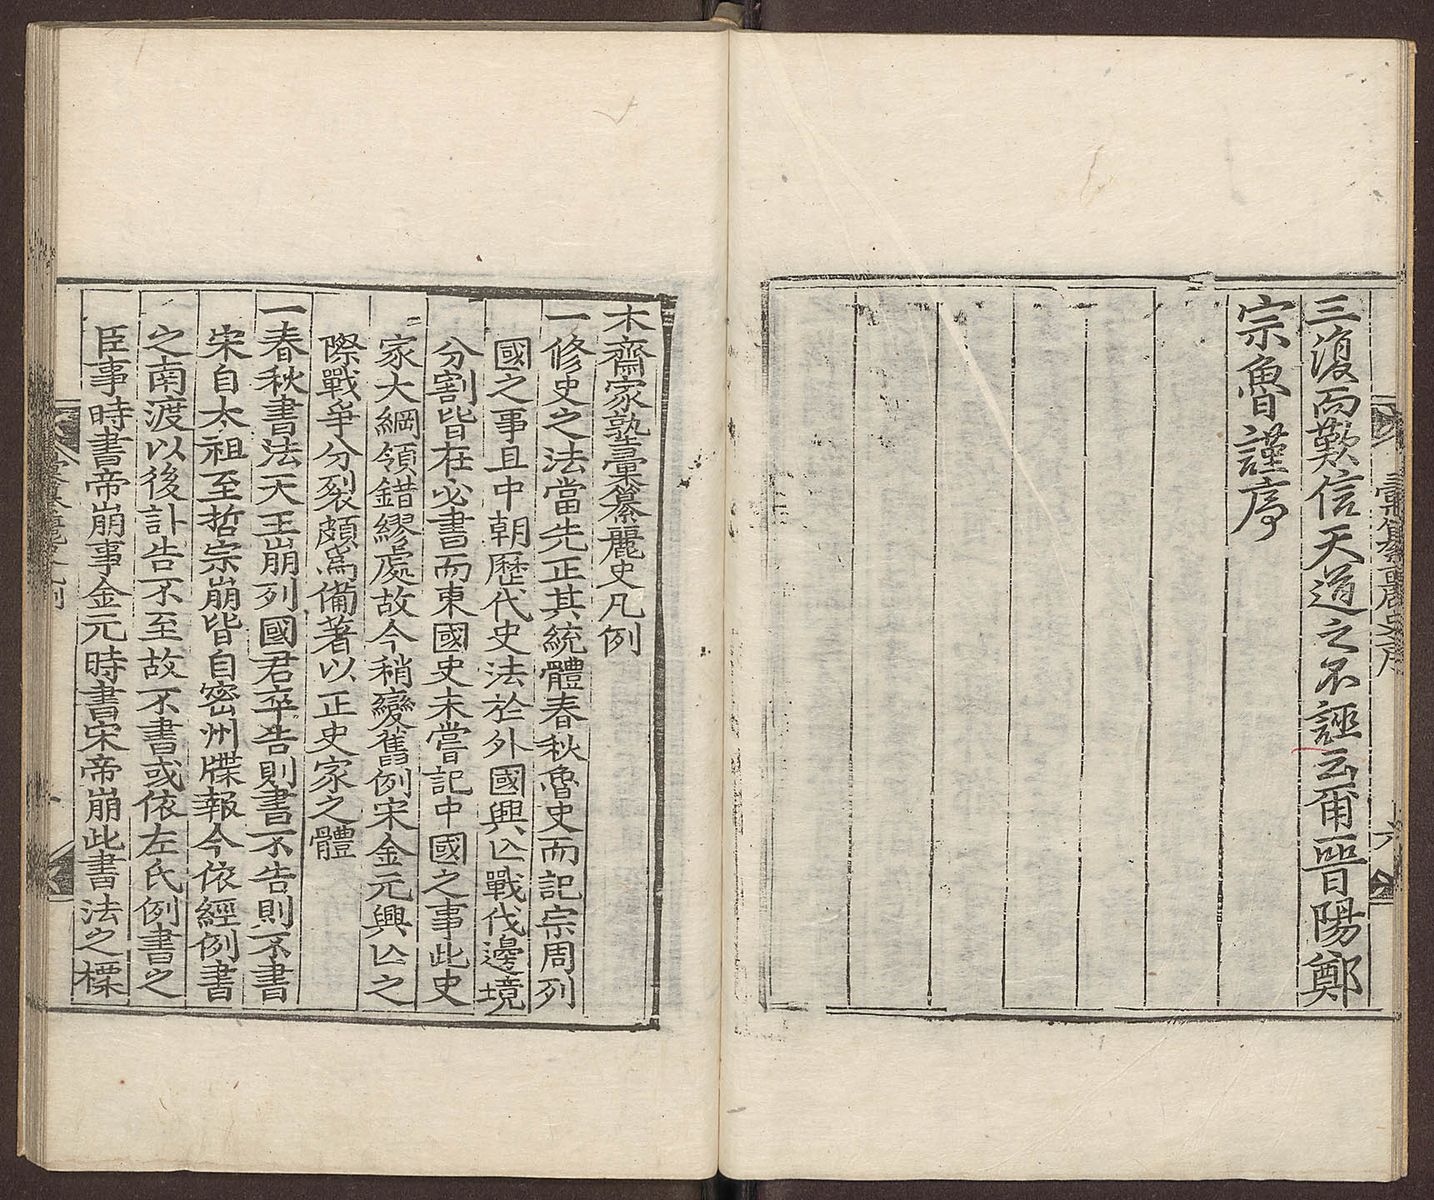 三復而歎信天道之不誣云甭晉陽鄭
宗魯謹序
彙纂麗史序
六
木齋家塾彙纂麗史凡例
一修史之法當先正其統體春秋魯史而記宗周列
國之事且中朝歷代史法於外國興亾戰伐邊境
分割皆在必書而東國史未嘗記中國之事此史
家大綱領錯繆處故今稍變舊例宋金元興亾之
際戰爭分裂頗爲備著以正史家之體
一春秋書法天王崩列國君卒告則書不告則不書
宋自太祖至哲宗崩皆自密州牒報今依經例書
之南渡以後訃告不至故不書或依左氏例書之
臣事時書帝崩事金元時書宋帝崩此書法之標